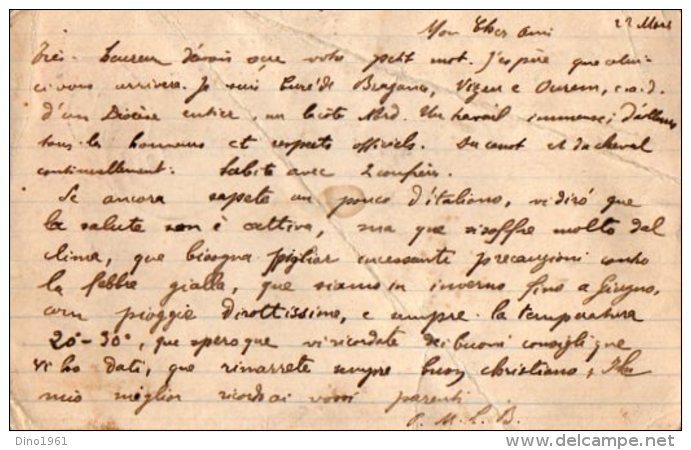 Mon Cher Ami 22 Mars
Très heureux d'avoir eu votre petit mot. J'espère que celui-
ci vous arrivera. Je suis Curé de Bragança, Vizeu e Ourem, c.a.d.
d'un Diocèse entier, un côté Nrd. Un travail immense; d'ailleurs
tous les honneurs et respects officiels. Du canot et du cheval
continuellement. habite avec 2 confrères.
Se ancora sapete un poco d'italiano, vi dirò que
la salute non è cattiva, ma que si soffre molto dal
clima, que bisogna pigliar incessante precauzioni contro
la febbre gialla, que siamo in inverno fino a Giugno,
con pioggie dirottissime, e sempre la temperatura
20°-30°, que spero que vi ricordate dei buoni consigli que
vi ho dati, que rimarrete sempre buon christiano, Il
mio miglior ricordo ai vostri parenti.
P. M. L. B.
Dino1961
delcampe.net